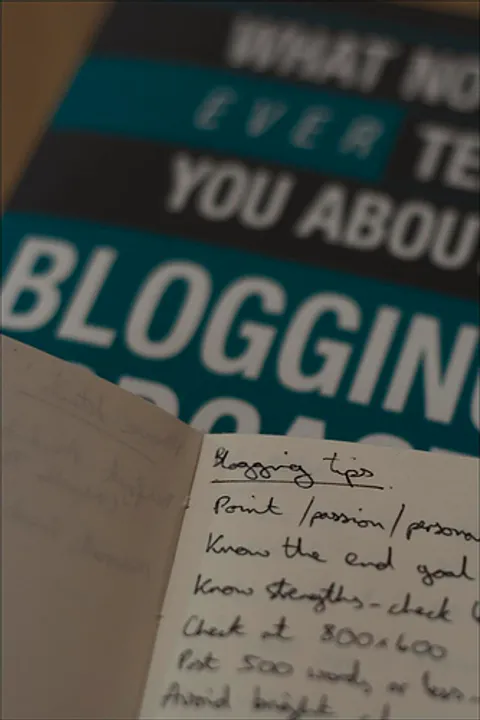 WHAT NO
EVER TE
YOU ABOU
BLOGGING
Blogging tips
Point / passion / persona
Know the end goal
Know strengths - check
Check at 800x600
Post 500 words or less -
Avoid bright